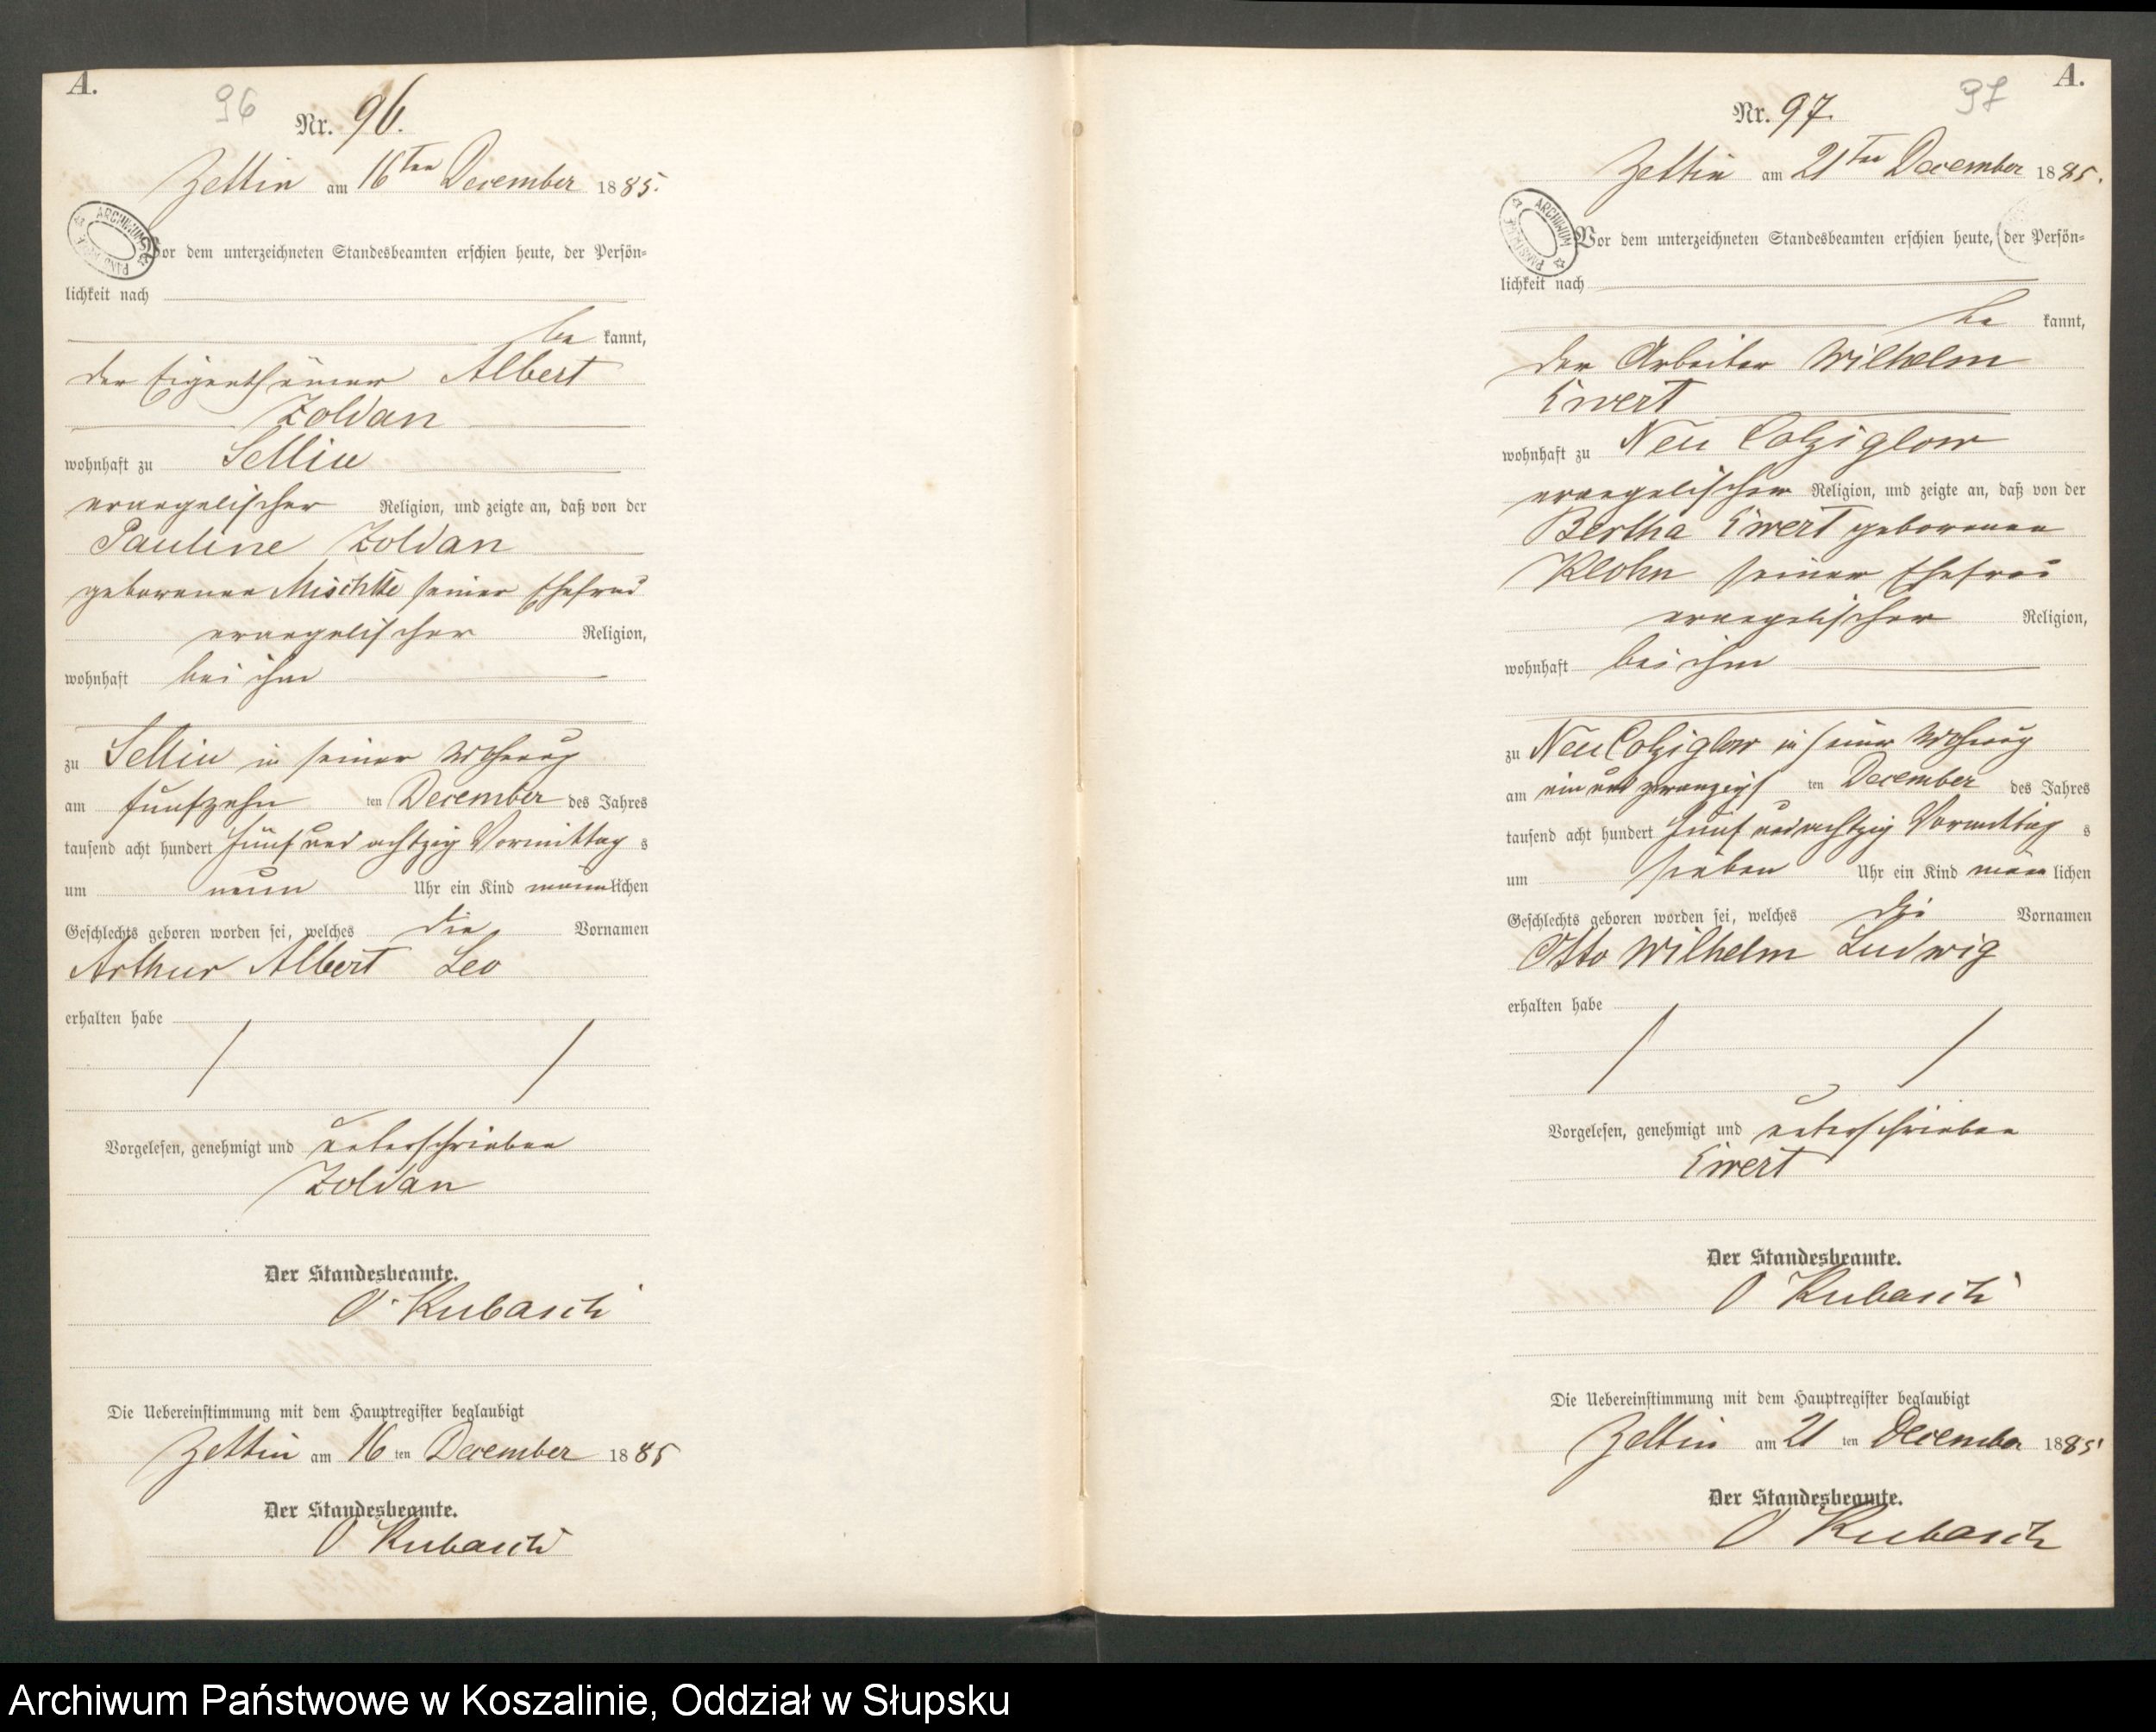 A.
96
Nr. 96.
Zettin am 16ten December 1885.
ARCHIWUM
Vor dem unterzeichneten Standesbeamten erschien heute, der Persön-
lichkeit nach
be kannt,
der Eigenthümer Albert
Zoldan
wohnhaft zu Sellin
evangelischer Religion, und zeigte an, daß von der
Pauline Zoldan
geborenen Mischke seiner Ehefrau
evangelischer Religion,
wohnhaft bei ihm
zu Sellin in seiner Wohnung
am fünfzehn ten December des Jahres
tausend acht hundert fünf und achtzig Vormittag s
um neun Uhr ein Kind männlichen
Geschlechts geboren worden sei, welches die Vornamen
Arthur Albert Leo
erhalten habe
Vorgelesen, genehmigt und unterschrieben
Zoldan
Der Standesbeamte.
Kubasch
Die Uebereinstimmung mit dem Hauptregister beglaubigt
Zettin am 16 ten December 1885
Der Standesbeamte.
Kubasch
A.
97
Nr. 97.
Zettin am 21ten December 1885.
ARCHIWUM
Vor dem unterzeichneten Standesbeamten erschien heute, der Persön-
lichkeit nach
be kannt,
der Arbeiter Wilhelm
Ewert
wohnhaft zu Neu Kolziglow
evangelischer Religion, und zeigte an, daß von der
Bertha Ewert geborenen
Klohn seiner Ehefrau
evangelischer Religion,
wohnhaft bei ihm
zu Neu Colziglow in seiner Wohnung
am ein und zwanzigs ten December des Jahres
tausend acht hundert fünf und achtzig Vormittag s
um sieben Uhr ein Kind männ lichen
Geschlechts geboren worden sei, welches die Vornamen
Otto Wilhelm Ludwig
erhalten habe
Vorgelesen, genehmigt und unterschrieben
Ewert
Der Standesbeamte.
Kubasch
Die Uebereinstimmung mit dem Hauptregister beglaubigt
Zettin am 21 ten December 1885
Der Standesbeamte.
Kubasch
Archiwum Państwowe w Koszalinie, Oddział w Słupsku